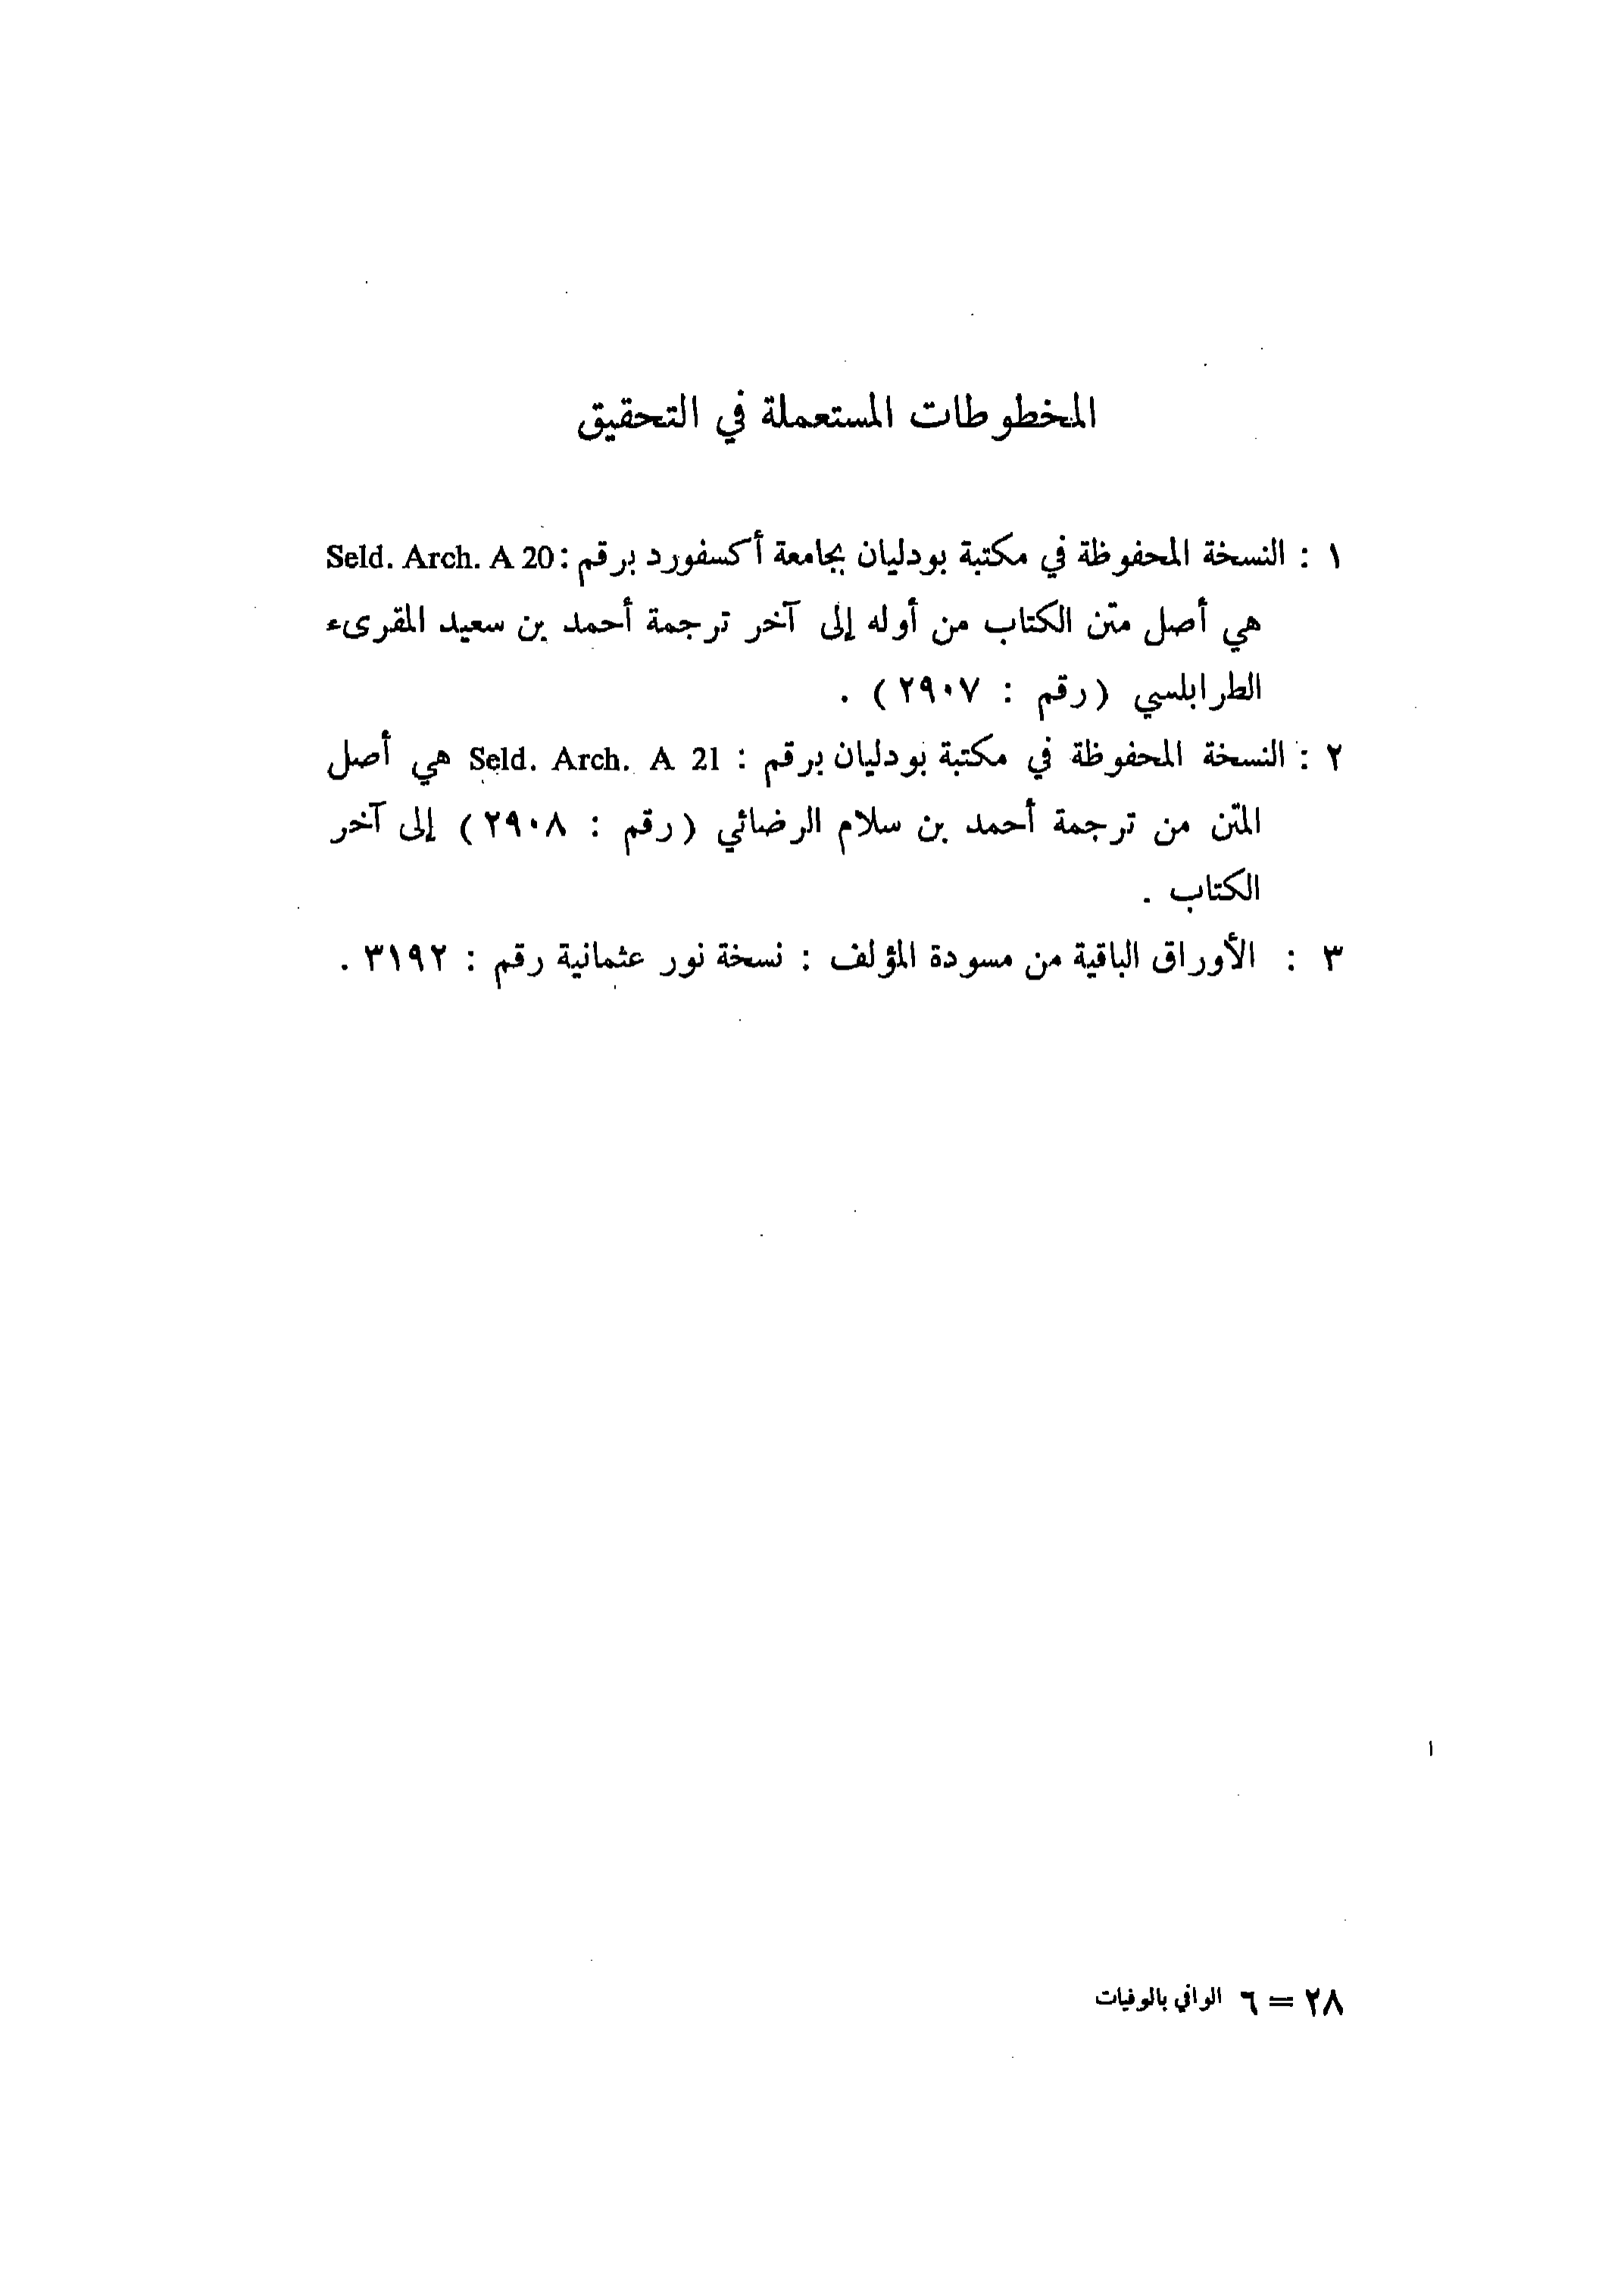 المخطوطات المستعملة في التحقيق
١ : النسخة المحفوظة في مكتبة بودليان بجامعة أكسفورد برقم : Seld. Arch. A 20
هي أصل متن الكتاب من أوله إلى آخر ترجمة أحمد بن سعيد المقرىء
الطرابلسي (رقم : ٢٩٠٧) .
٢ : النسخة المحفوظة في مكتبة بودليان برقم : Seld. Arch. A 21 هي أصل
المتن من ترجمة أحمد بن سلام الرضائي (رقم : ٢٩٠٨) إلى آخر
الكتاب .
٣ : الأوراق الباقية من مسودة المؤلف : نسخة نور عثمانية رقم : ٣١٩٢ .
٢٨ = ٦ الوافي بالوفيات